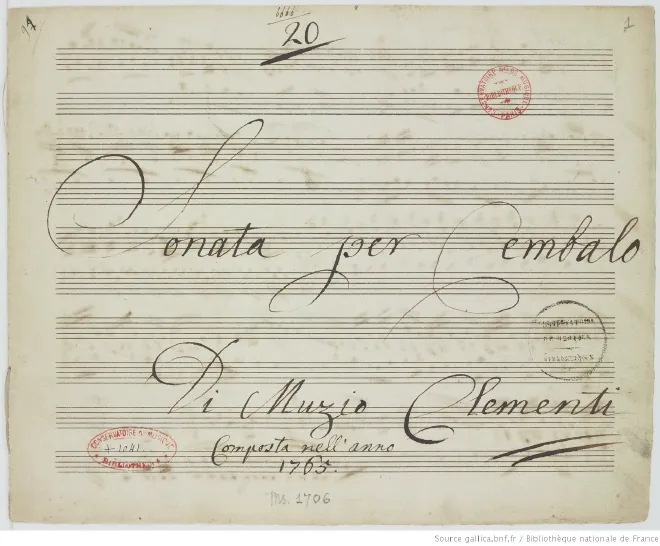 20
1
CONSERVATOIRE DE MUSIQUE
BIBLIOTHÈQUE
PARIS
Sonata per Cembalo
Di Muzio Clementi
CONSERVATOIRE DE MUSIQUE
+ 1041.
BIBLIOTHÈQUE
Composta nell'anno
1765.
Ms. 1706
Source gallica.bnf.fr / Bibliothèque nationale de France